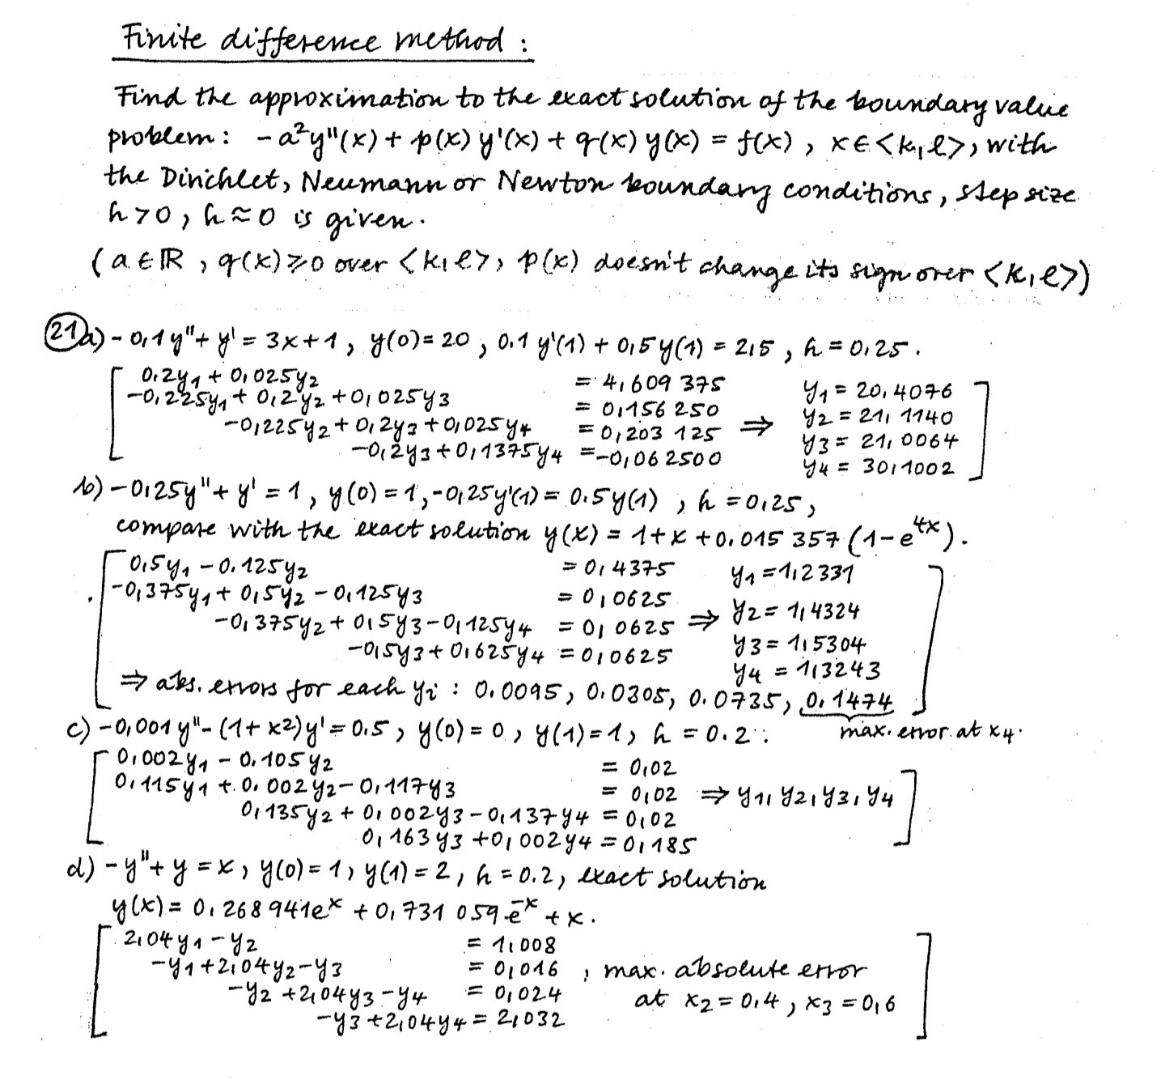 Finite difference method :
Find the approximation to the exact solution of the boundary value
problem: -a²y"(x) + p(x) y'(x) + q(x) y(x) = f(x) , x∈<k,l>, with
the Dirichlet, Neumann or Newton boundary conditions, step size
h>0, h≈0 is given.
(a∈ℝ , q(x)≥0 over <k,l>, p(x) doesn't change its sign over <k,l>)
21a) -0,1y"+y' = 3x+1, y(0)=20, 0.1 y'(1) + 0,5y(1) = 2,5 , h=0,25.
0.2y₁ + 0,025y₂ = 4,609 375 y₁ = 20,4076
-0,225y₁ + 0,2y₂ + 0,025y₃ = 0,156 250 y₂ = 21,1140
-0,225y₂ + 0,2y₃ + 0,025y₄ = 0,203 125 ⇒ y₃ = 21,0064
-0,2y₃ + 0,1375y₄ = -0,062500 y₄ = 30,1002
b) -0,25y"+y' = 1, y(0)=1, -0,25y'(1) = 0.5y(1) , h=0,25,
compare with the exact solution y(x) = 1+x+0.015 357 (1-e⁴ˣ).
0,5y₁ - 0.125y₂ = 0,4375 y₁ = 1,2331
-0,375y₁ + 0,5y₂ - 0,125y₃ = 0,0625 y₂ = 1,4324
-0,375y₂ + 0,5y₃ - 0,125y₄ = 0,0625 ⇒ y₃ = 1,5304
-0,5y₃ + 0,625y₄ = 0,0625 y₄ = 1,3243
⇒ abs. errors for each yᵢ : 0.0095, 0.0305, 0.0735, 0.1474
max. error at x₄.
c) -0,001y" - (1+x²)y' = 0.5 , y(0)=0 , y(1)=1, h=0.2 :
0,002y₁ - 0.105y₂ = 0,02
0,115y₁ + 0.002y₂ - 0,117y₃ = 0,02 ⇒ y₁, y₂, y₃, y₄
0,135y₂ + 0,002y₃ - 0,137y₄ = 0,02
0,163y₃ + 0,002y₄ = 0,185
d) -y"+y = x, y(0)=1, y(1)=2, h=0.2, exact solution
y(x) = 0,268 941eˣ + 0,731 059e⁻ˣ + x.
2,04y₁ - y₂ = 1,008
-y₁ + 2,04y₂ - y₃ = 0,016 , max. absolute error
-y₂ + 2,04y₃ - y₄ = 0,024 at x₂ = 0,4 , x₃ = 0,6
-y₃ + 2,04y₄ = 2,032